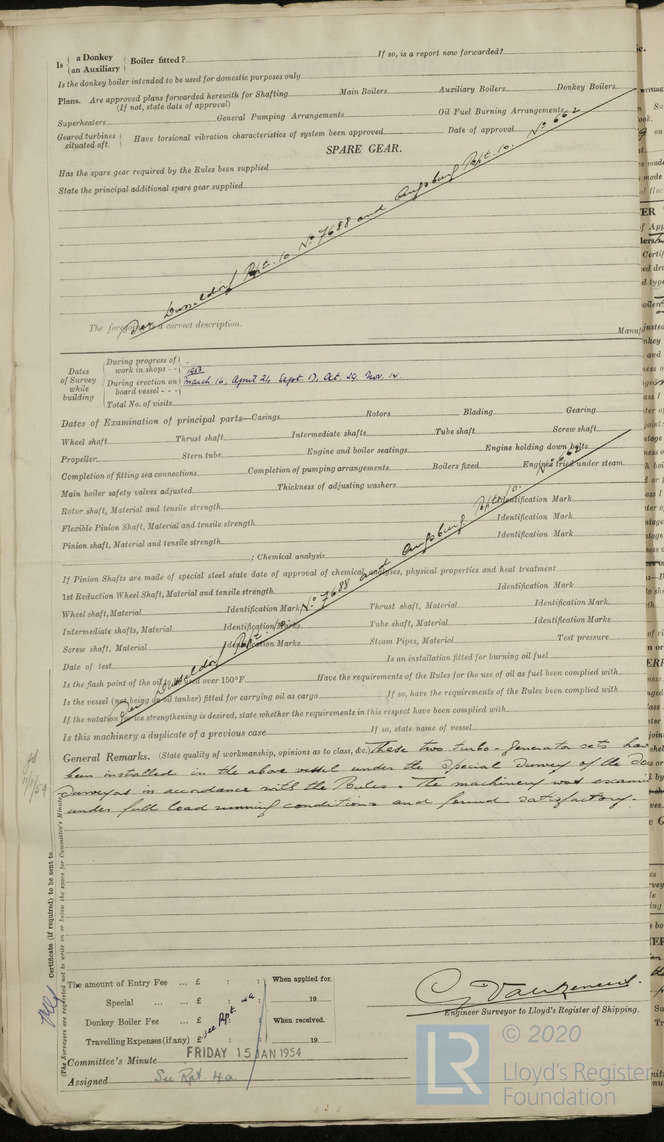 Is { a Donkey / an Auxiliary } Boiler fitted? If so, is a report now forwarded?
Is the donkey boiler intended to be used for domestic purposes only
Plans. Are approved plans forwarded herewith for Shafting Main Boilers Auxiliary Boilers Donkey Boilers
(If not, state date of approval)
Superheaters General Pumping Arrangements Oil Fuel Burning Arrangements
Geared turbines situated aft. } Have torsional vibration characteristics of system been approved Date of approval
SPARE GEAR.
Has the spare gear required by the Rules been supplied
State the principal additional spare gear supplied
See Dusseldorf Rpt. 10 No 7688 and Augsburg Rpt. 10. No 662
The foregoing is a correct description.
Manuf
Dates of Survey while building
During progress of work in shops - -
1953
During erection on board vessel - - - March 16, April 21, Sept. 17, Oct 29, Nov. 14.
Total No. of visits
Dates of Examination of principal parts—Casings Rotors Blading Gearing
Wheel shaft Thrust shaft Intermediate shafts Tube shaft Screw shaft
Propeller Stern tube Engine and boiler seatings Engine holding down bolts
Completion of fitting sea connections Completion of pumping arrangements Boilers fixed Engines tried under steam
Main boiler safety valves adjusted Thickness of adjusting washers
Rotor shaft, Material and tensile strength Identification Mark
Flexible Pinion Shaft, Material and tensile strength Identification Mark
Pinion shaft, Material and tensile strength Identification Mark
; Chemical analysis
If Pinion Shafts are made of special steel state date of approval of chemical analyses, physical properties and heat treatment
1st Reduction Wheel Shaft, Material and tensile strength Identification Mark
Wheel shaft, Material Identification Mark Thrust shaft, Material Identification Mark
Intermediate shafts, Material Identification Marks Tube shaft, Material Identification Marks
Screw shaft, Material Identification Marks Steam Pipes, Material Test pressure
Date of test Is an installation fitted for burning oil fuel
Is the flash point of the oil to be used over 150°F. Have the requirements of the Rules for the use of oil as fuel been complied with
Is the vessel (not being an oil tanker) fitted for carrying oil as cargo If so, have the requirements of the Rules been complied with
If the notation for ice strengthening is desired, state whether the requirements in this respect have been complied with
See Dusseldorf Rpt. 10 No 7688 and Augsburg Rpt. 10. No 662
Is this machinery a duplicate of a previous case If so, state name of vessel
General Remarks. (State quality of workmanship, opinions as to class, &c. These two turbo-generator sets have
been installed in the above vessel under the Special Survey of the
Surveyors in accordance with the Rules. The machinery was
under full load running conditions and found satisfactory.
Certificate (if required) to be sent to
(The Surveyors are requested not to write on or below the space for Committee's Minute.)
The amount of Entry Fee ... £ : : When applied for.
Special ... £ : : 19
Donkey Boiler Fee ... £ : : When received.
Travelling Expenses (if any) £ : : 19
see Rpt. 4a
Engineer Surveyor to Lloyd's Register of Shipping.
Committee's Minute FRIDAY 15 JAN 1954
Assigned See Rpt. 4a
LR
© 2020
Lloyd's Register
Foundation